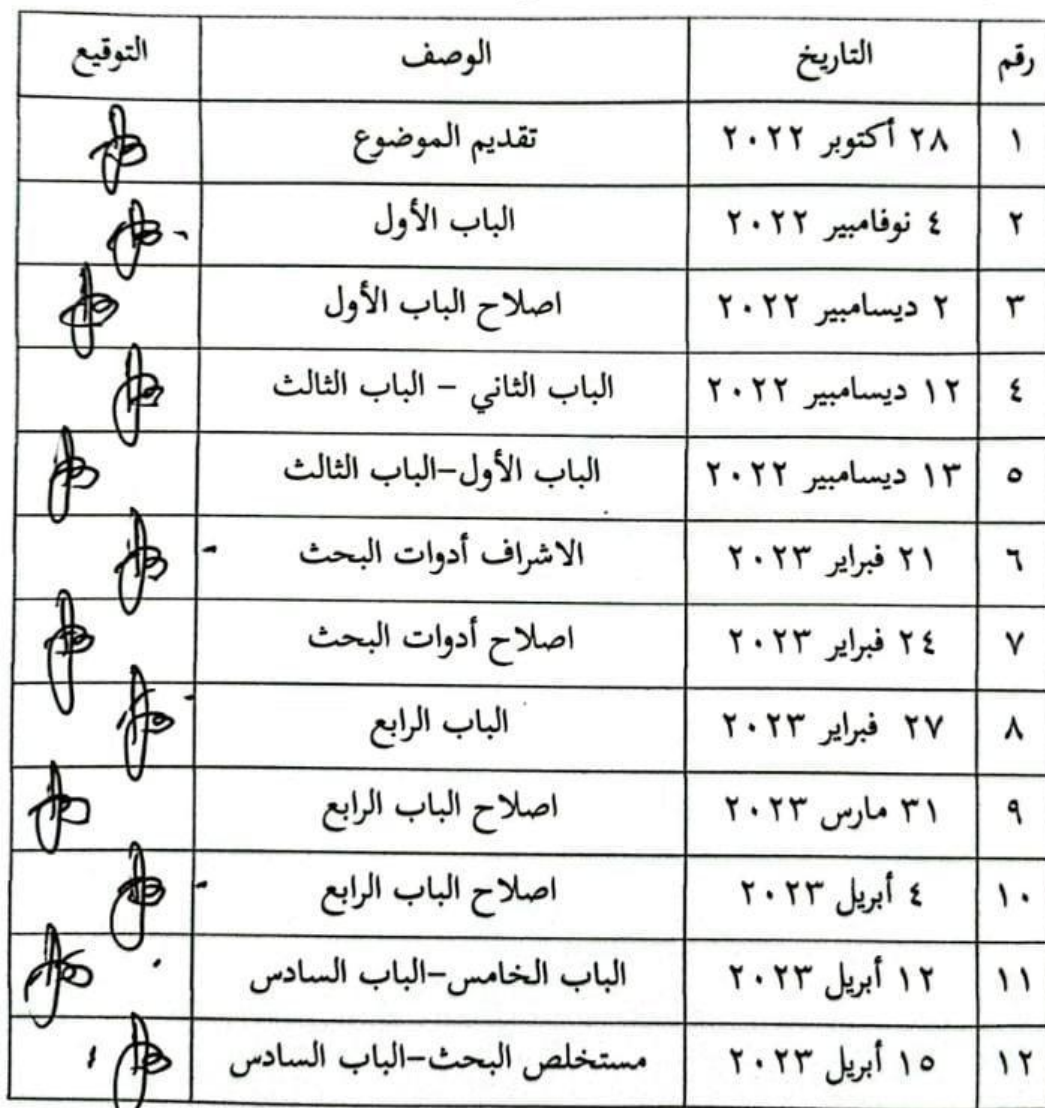 رقم التاريخ الوصف التوقيع
١ ٢٨ أكتوبر ٢٠٢٢ تقديم الموضوع
٢ ٤ نوفامبير ٢٠٢٢ الباب الأول
٣ ٢ ديسامبير ٢٠٢٢ اصلاح الباب الأول
٤ ١٢ ديسامبير ٢٠٢٢ الباب الثاني – الباب الثالث
٥ ١٣ ديسامبير ٢٠٢٢ الباب الأول–الباب الثالث
٦ ٢١ فبراير ٢٠٢٣ الاشراف أدوات البحث
٧ ٢٤ فبراير ٢٠٢٣ اصلاح أدوات البحث
٨ ٢٧ فبراير ٢٠٢٣ الباب الرابع
٩ ٣١ مارس ٢٠٢٣ اصلاح الباب الرابع
١٠ ٤ أبريل ٢٠٢٣ اصلاح الباب الرابع
١١ ١٢ أبريل ٢٠٢٣ الباب الخامس–الباب السادس
١٢ ١٥ أبريل ٢٠٢٣ مستخلص البحث–الباب السادس